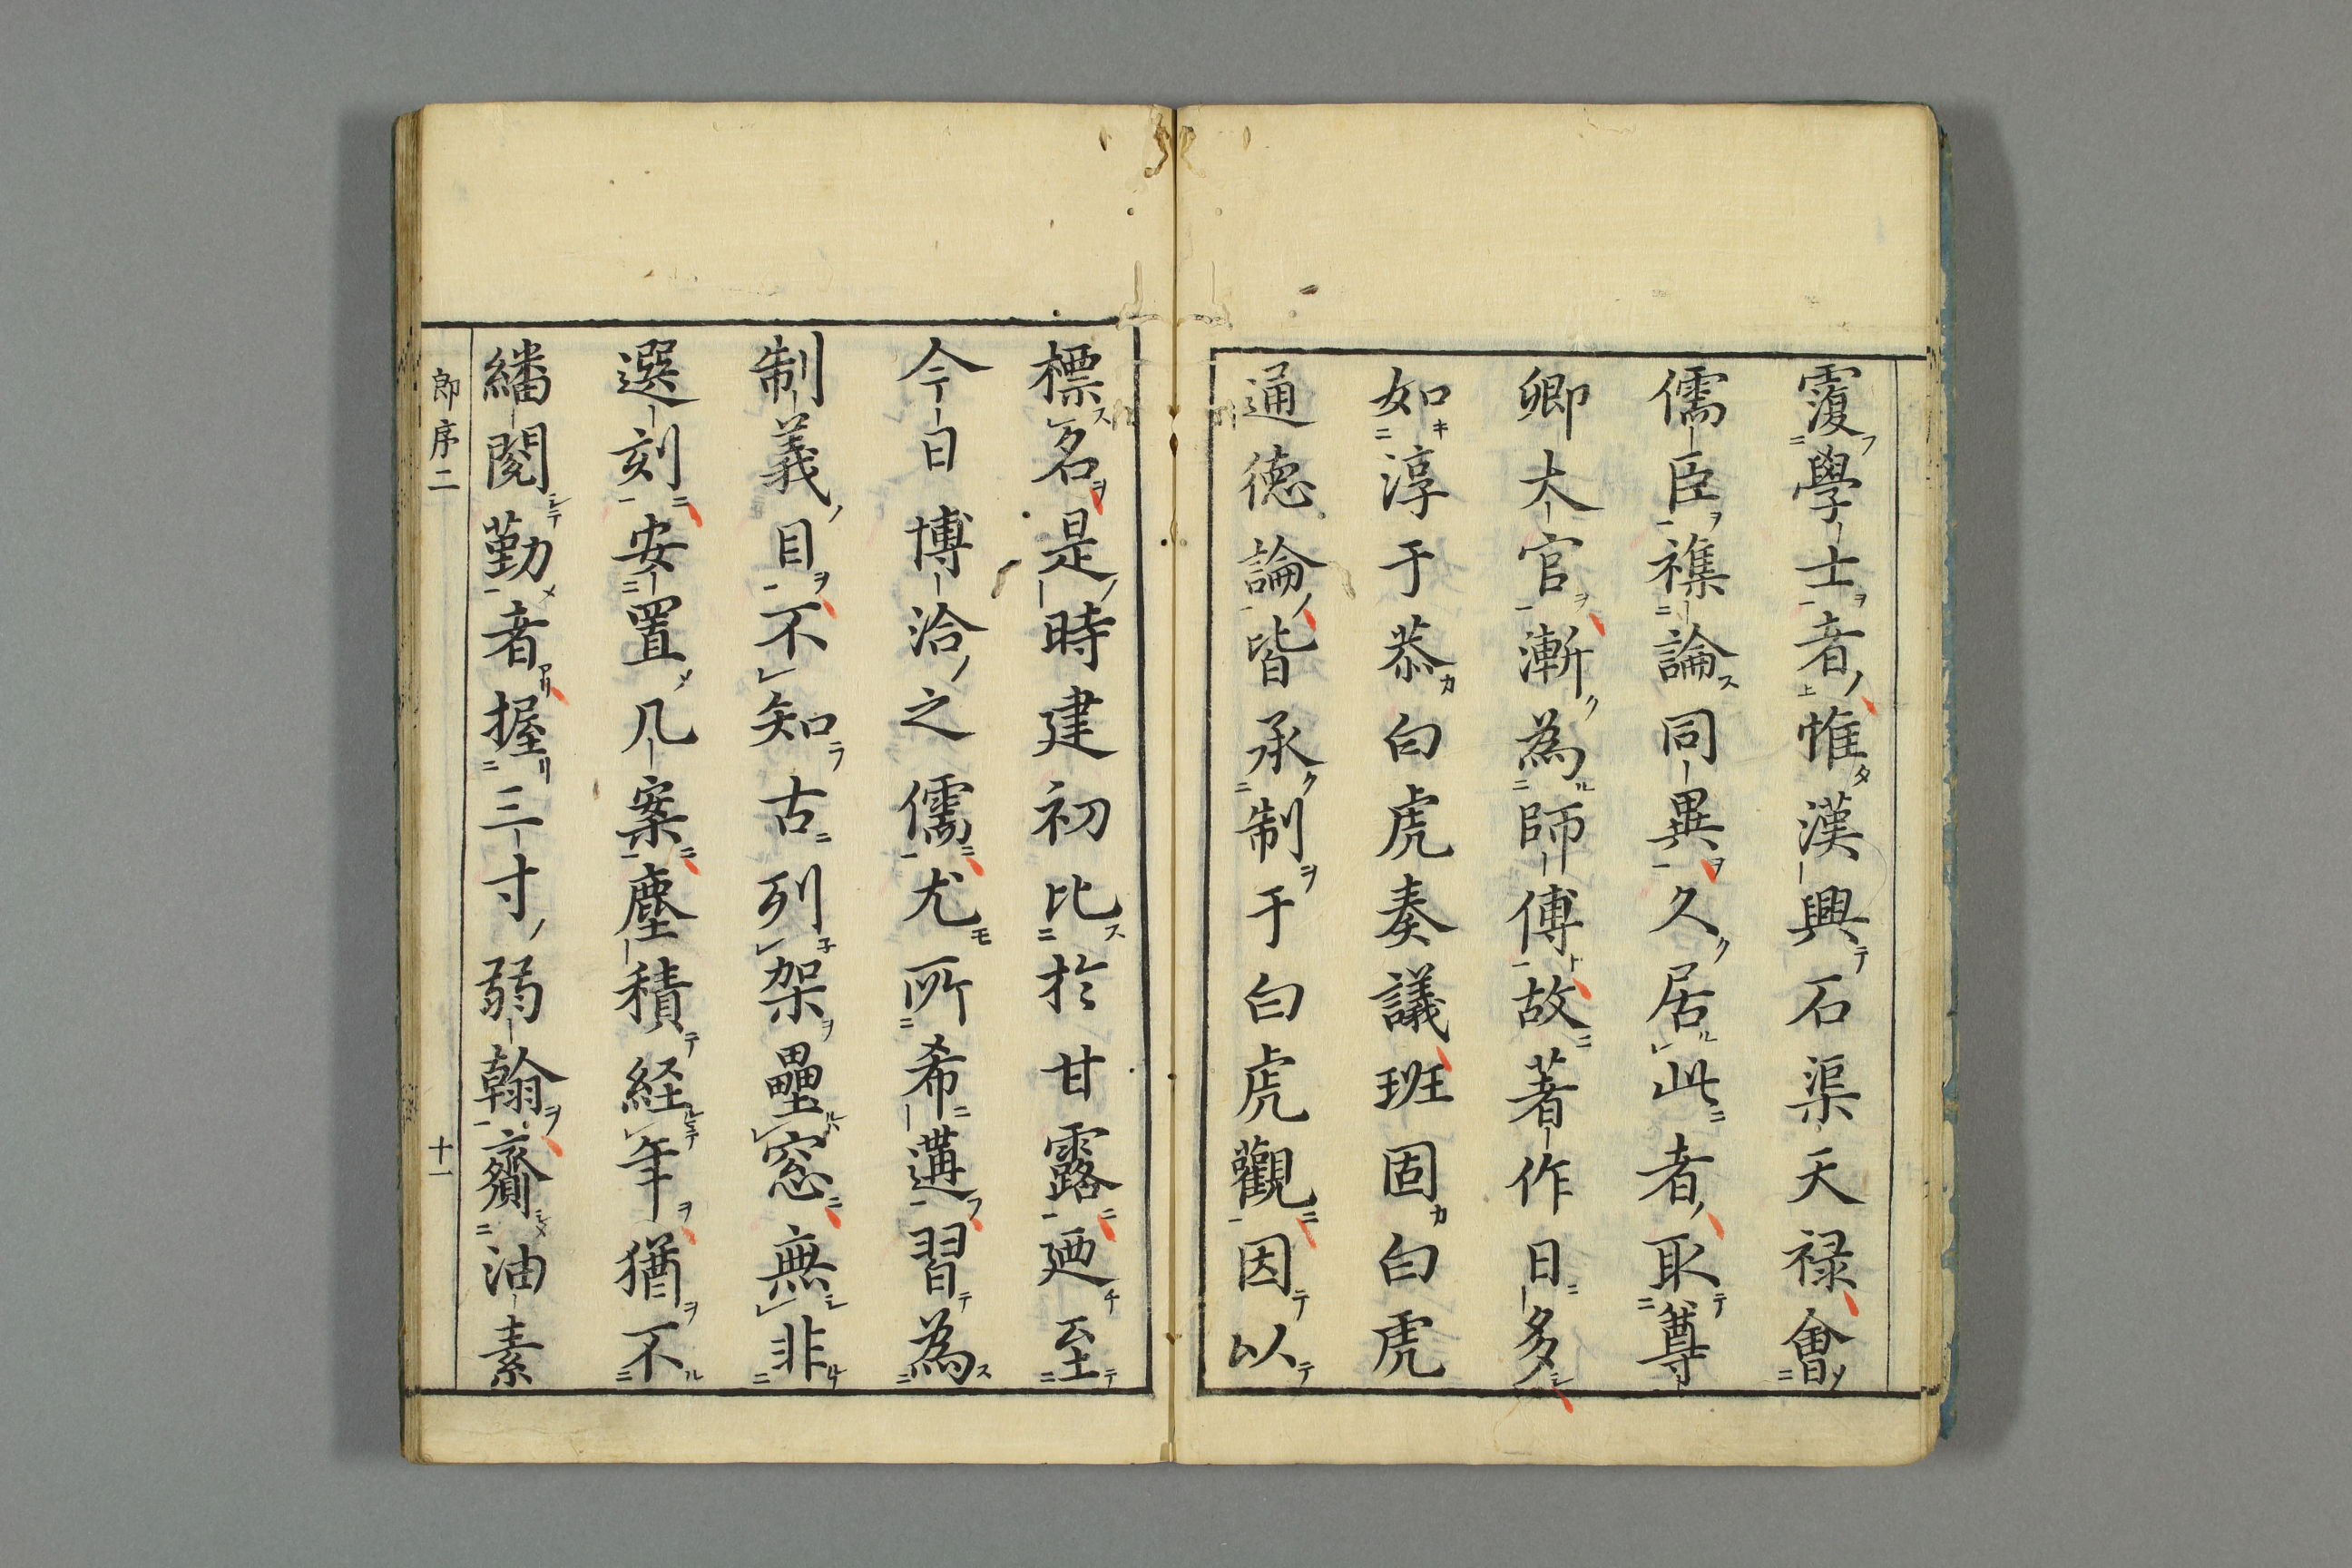 覆學士者惟漢興石渠天禄會
儒臣襍論同異久居此者取尊
卿大官漸為師傅故著作日多
如淳于恭白虎奏議班固白虎
通徳論皆承制于白虎觀因以
標名是時建初比於甘露廼至
今日博洽之儒尤所希遘習為
制義目不知古列架壘窓無非
選刻安置几案塵積経年猶不
繙閲勤者握三寸弱翰齎油素
郎序二
十一